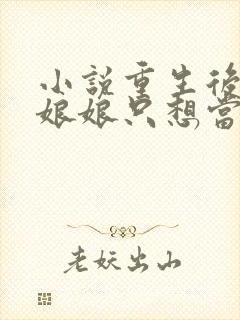 小說重生後
娘娘只想當
老妖出山